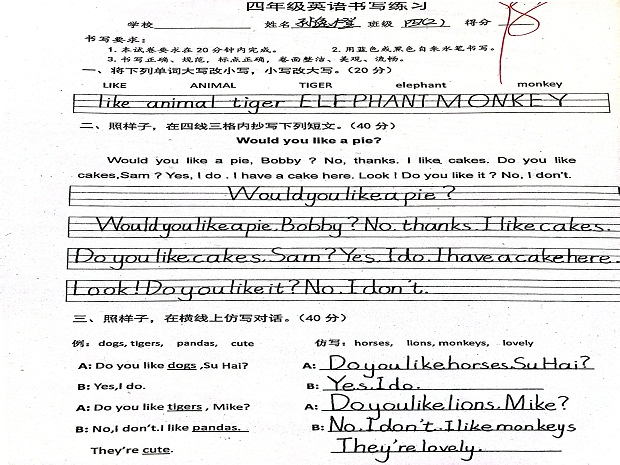 四年级英语书写练习
学校 姓名 班级 四(2) 得分
书写要求:
1. 本试卷要求在20分钟内完成。 2. 用蓝色或黑色自来水笔书写。
3. 书写正确、规范,标点正确,卷面整洁、美观、流畅。
一、将下列单词大写改小写,小写改大写。(20分)
LIKE ANIMAL TIGER elephant monkey
like animal tiger ELEPHANT MONKEY
二、照样子,在四线三格内抄写下列短文。(40分)
Would you like a pie?
Would you like a pie, Bobby ? No, thanks. I like cakes. Do you like
cakes,Sam ? Yes, I do . I have a cake here. Look ! Do you like it ? No, I don't.
Would you like a pie ?
Would you like a pie, Bobby ? No, thanks. I like cakes.
Do you like cakes, Sam ? Yes, I do. I have a cake here.
Look ! Do you like it ? No, I don't.
三、照样子,在横线上仿写对话。(40分)
例: dogs, tigers, pandas, cute 仿写: horses, lions, monkeys, lovely
A: Do you like dogs ,Su Hai? A: Do you like horses, Su Hai?
B: Yes,I do. B: Yes, I do.
A: Do you like tigers , Mike? A: Do you like lions, Mike?
B: No,I don't.I like pandas. B: No, I don't. I like monkeys
They're cute. They're lovely.